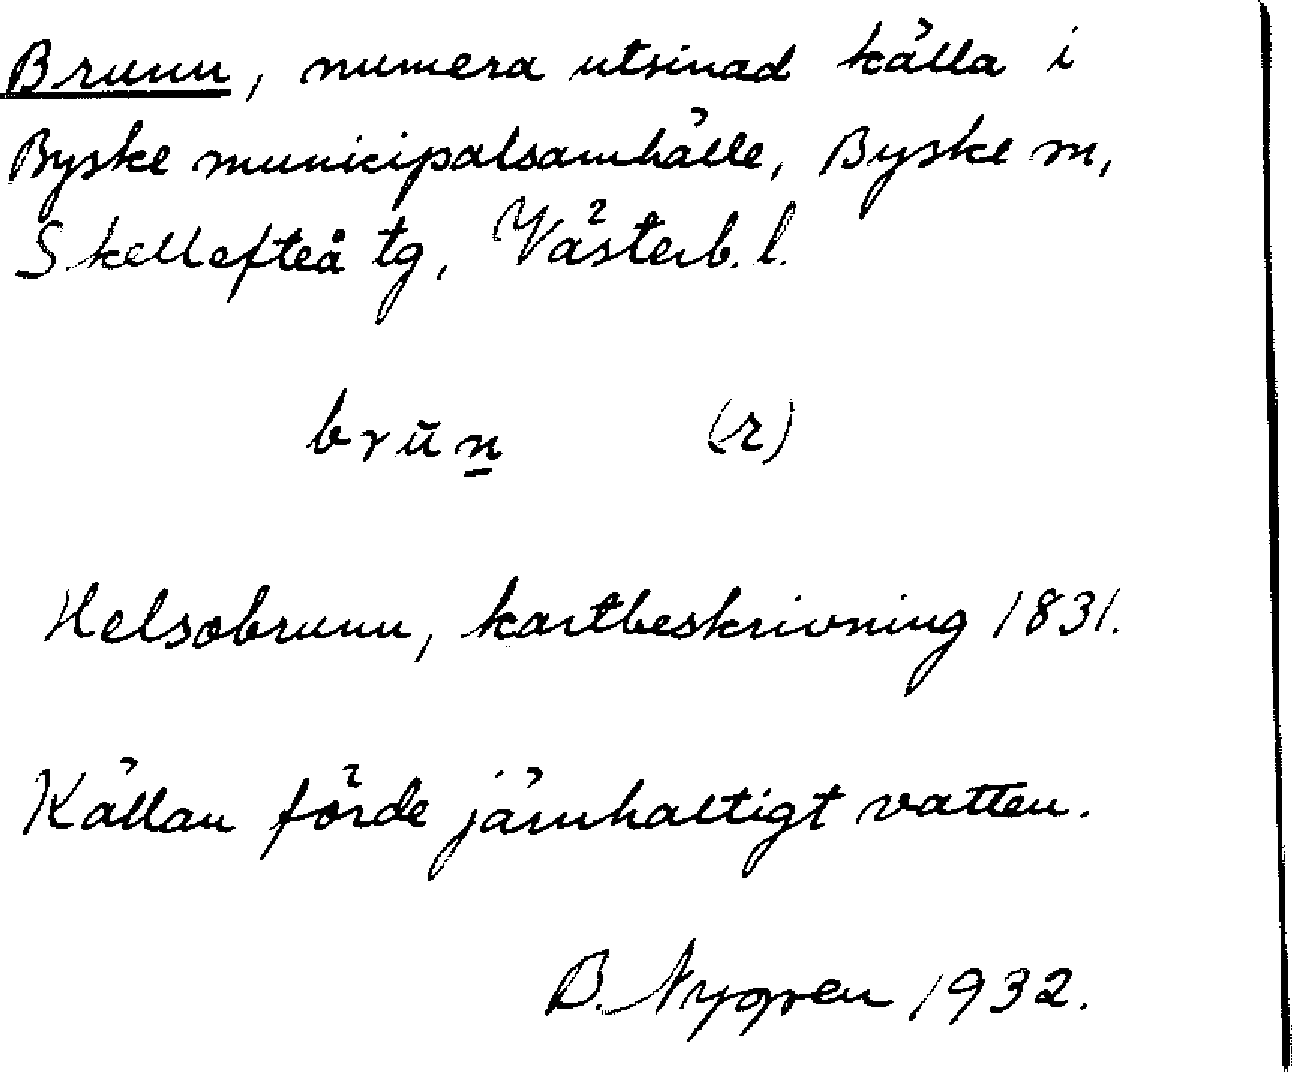 Brunn, numera utsinad källa i
Byske municipalsamhälle, Byske sn,
Skellefteå tg, Västerb. l.
brūn̲ (r)
Helsobrunn, kartbeskrivning 1831.
Källan förde järnhaltigt vatten.
B. Nygren 1932.